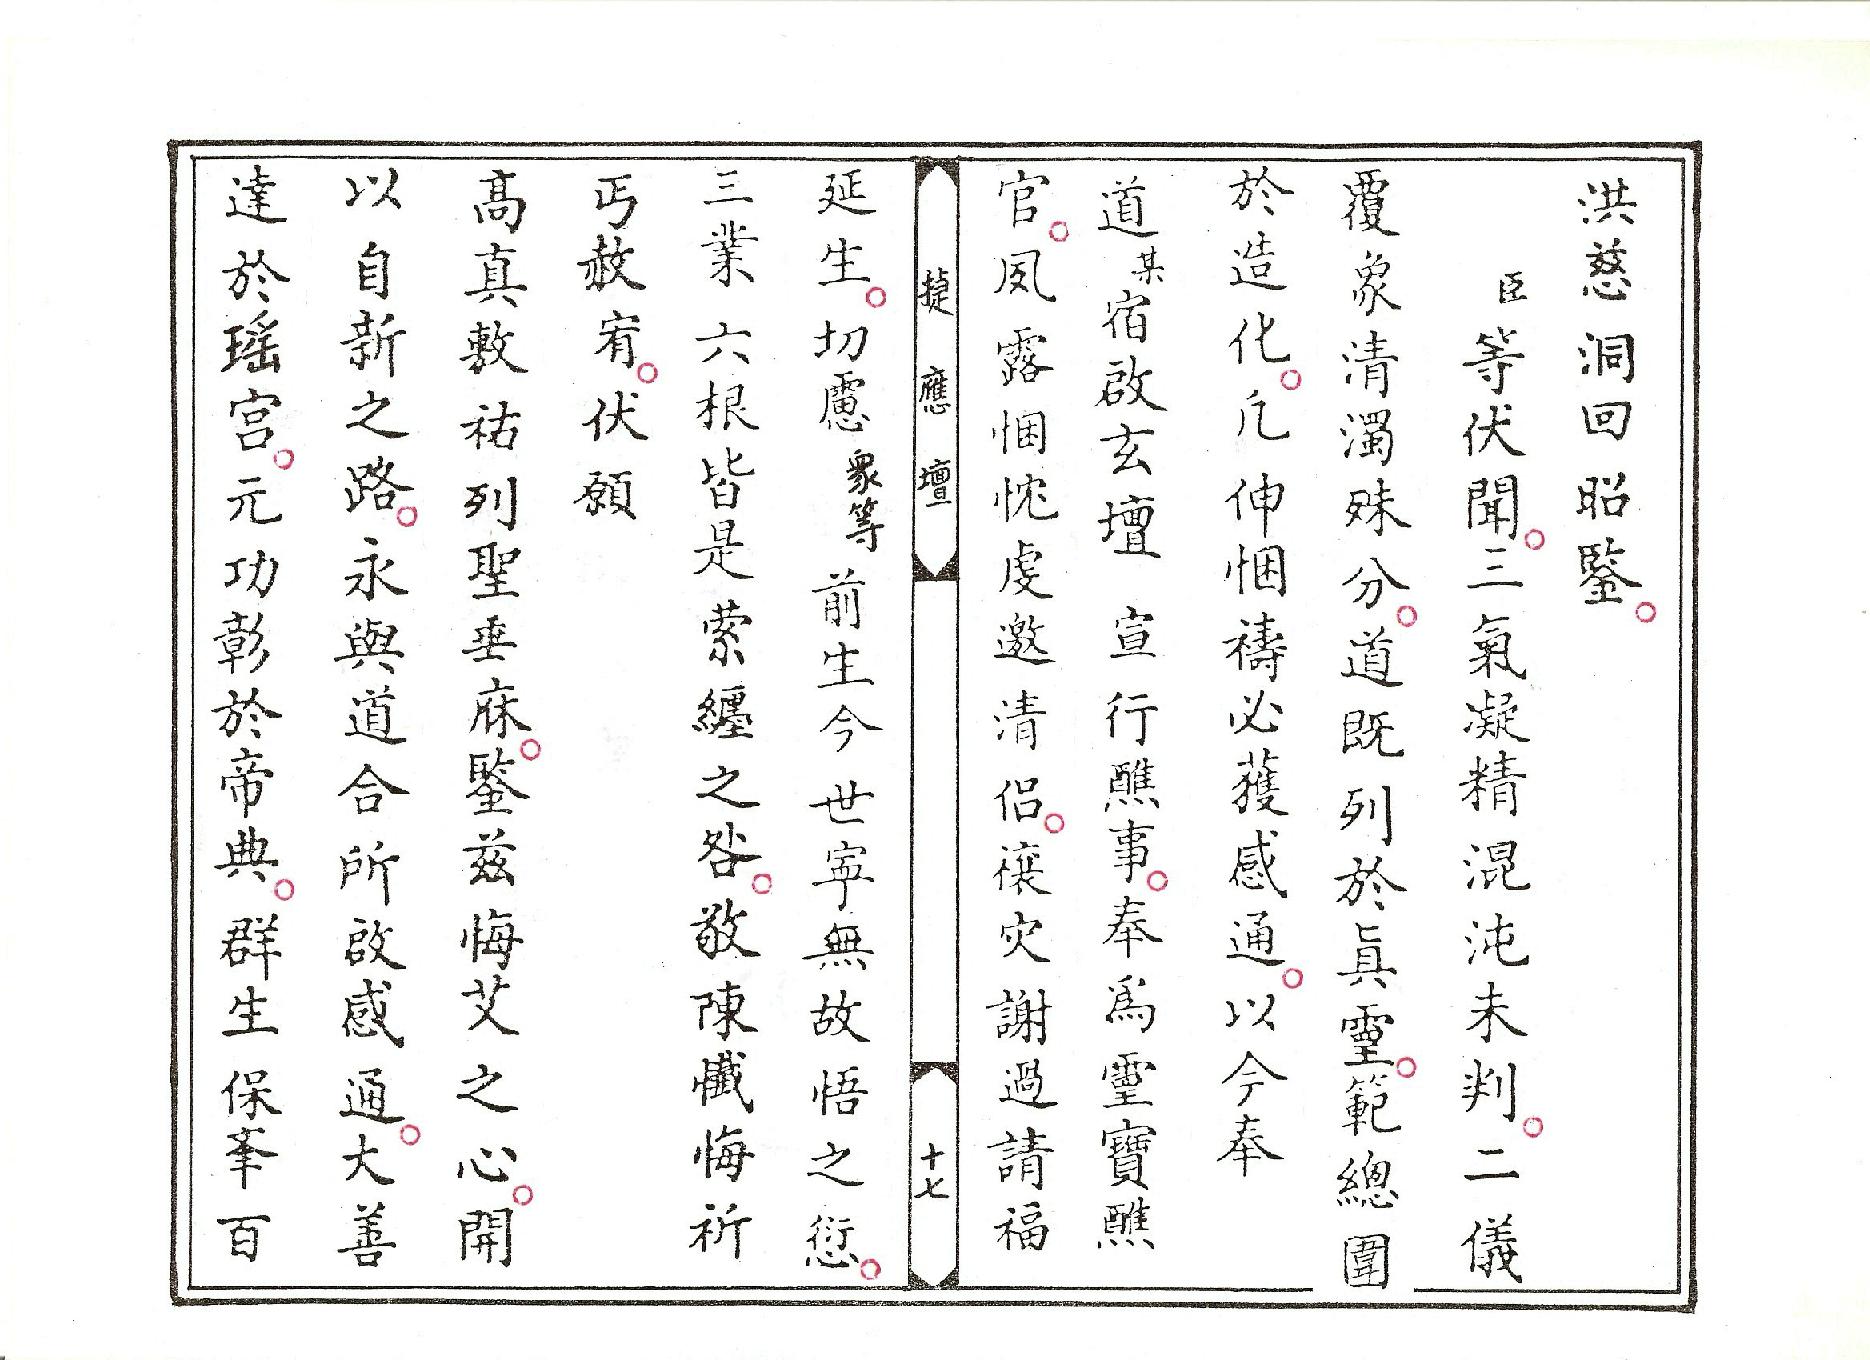 洪慈洞回昭鑒○
臣等伏聞○三氣凝精混沌未判○二儀
覆象清濁殊分○道既列於眞靈○範總圍
於造化○凢伸悃禱必獲感通○以今奉
道某宿啟玄壇 宣行醮事○奉爲靈寶醮
官○夙露悃忱虔邀清侣○禳灾謝過請福
捷應壇
十七
延生○切慮衆等前生今世寧無故悟之愆○
三業六根皆是縈纏之咎○敬陳懺悔祈
丐赦宥○伏願
髙真敷祐列聖垂庥○鑒兹悔艾之心○開
以自新之路○永與道合所啟感通○大善
達於瑶宫○元功彰於帝典○群生保峯百